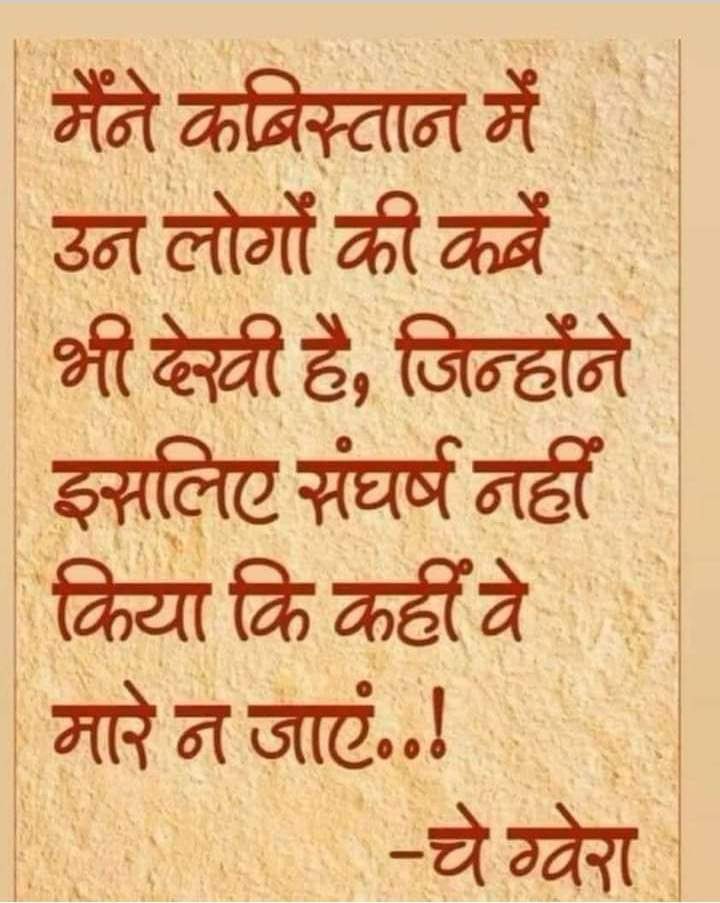 मैंने कब्रिस्तान में
उन लोगों की कब्रें
भी देखी है, जिन्होंने
इसलिए संघर्ष नहीं
किया कि कहीं वे
मारे न जाएं..!
-चे ग्वेरा